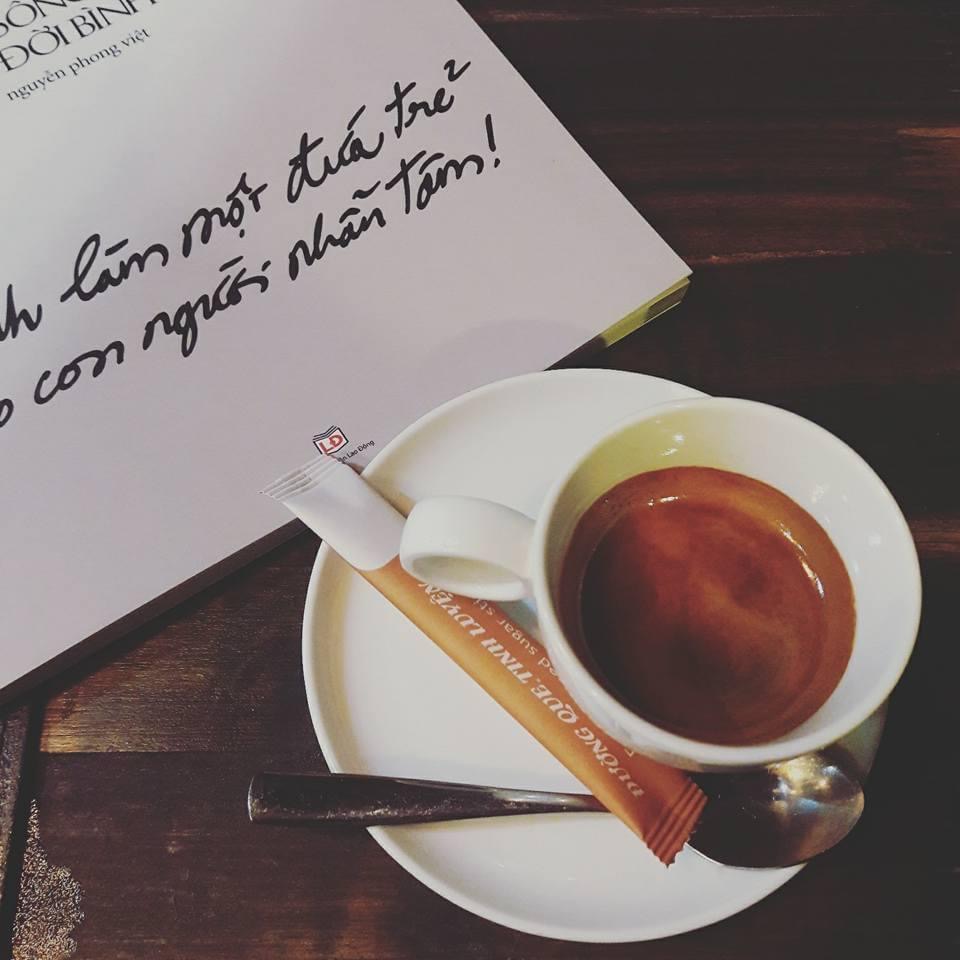 SỐNG
ĐỜI BÌNH
nguyễn phong việt
làm một đứa trẻ
con người nhẫn tâm!
LĐ
Lao Động
ĐƯỜNG QUE TINH LUYỆN
sugar sti